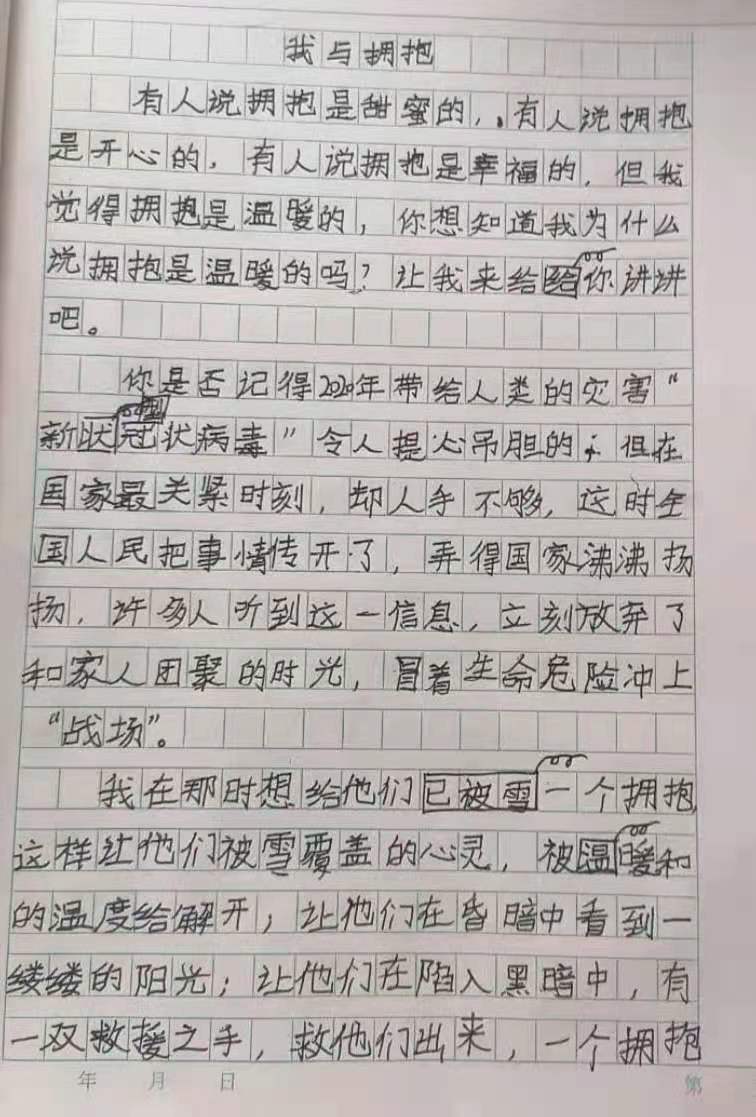 我与拥抱
有人说拥抱是甜蜜的，有人说拥抱
是开心的，有人说拥抱是幸福的，但我
觉得拥抱是温暖的，你想知道我为什么
说拥抱是温暖的吗？让我来给给你讲讲
吧。
你是否记得2020年带给人类的灾害“
新冠状病毒”令人提心吊胆的，但在
国家最关紧时刻，却人手不够，这时全
国人民把事情传开了，弄得国家沸沸扬
扬，许多人听到这一信息，立刻放弃了
和家人团聚的时光，冒着生命危险冲上
“战场”。
我在那时想给他们已被雪一个拥抱，
这样让他们被雪覆盖的心灵，被温暖和
的温度给解开，让他们在昏暗中看到一
缕缕的阳光；让他们在陷入黑暗中，有
一双救援之手，救他们出来，一个拥抱
年 月 日 第